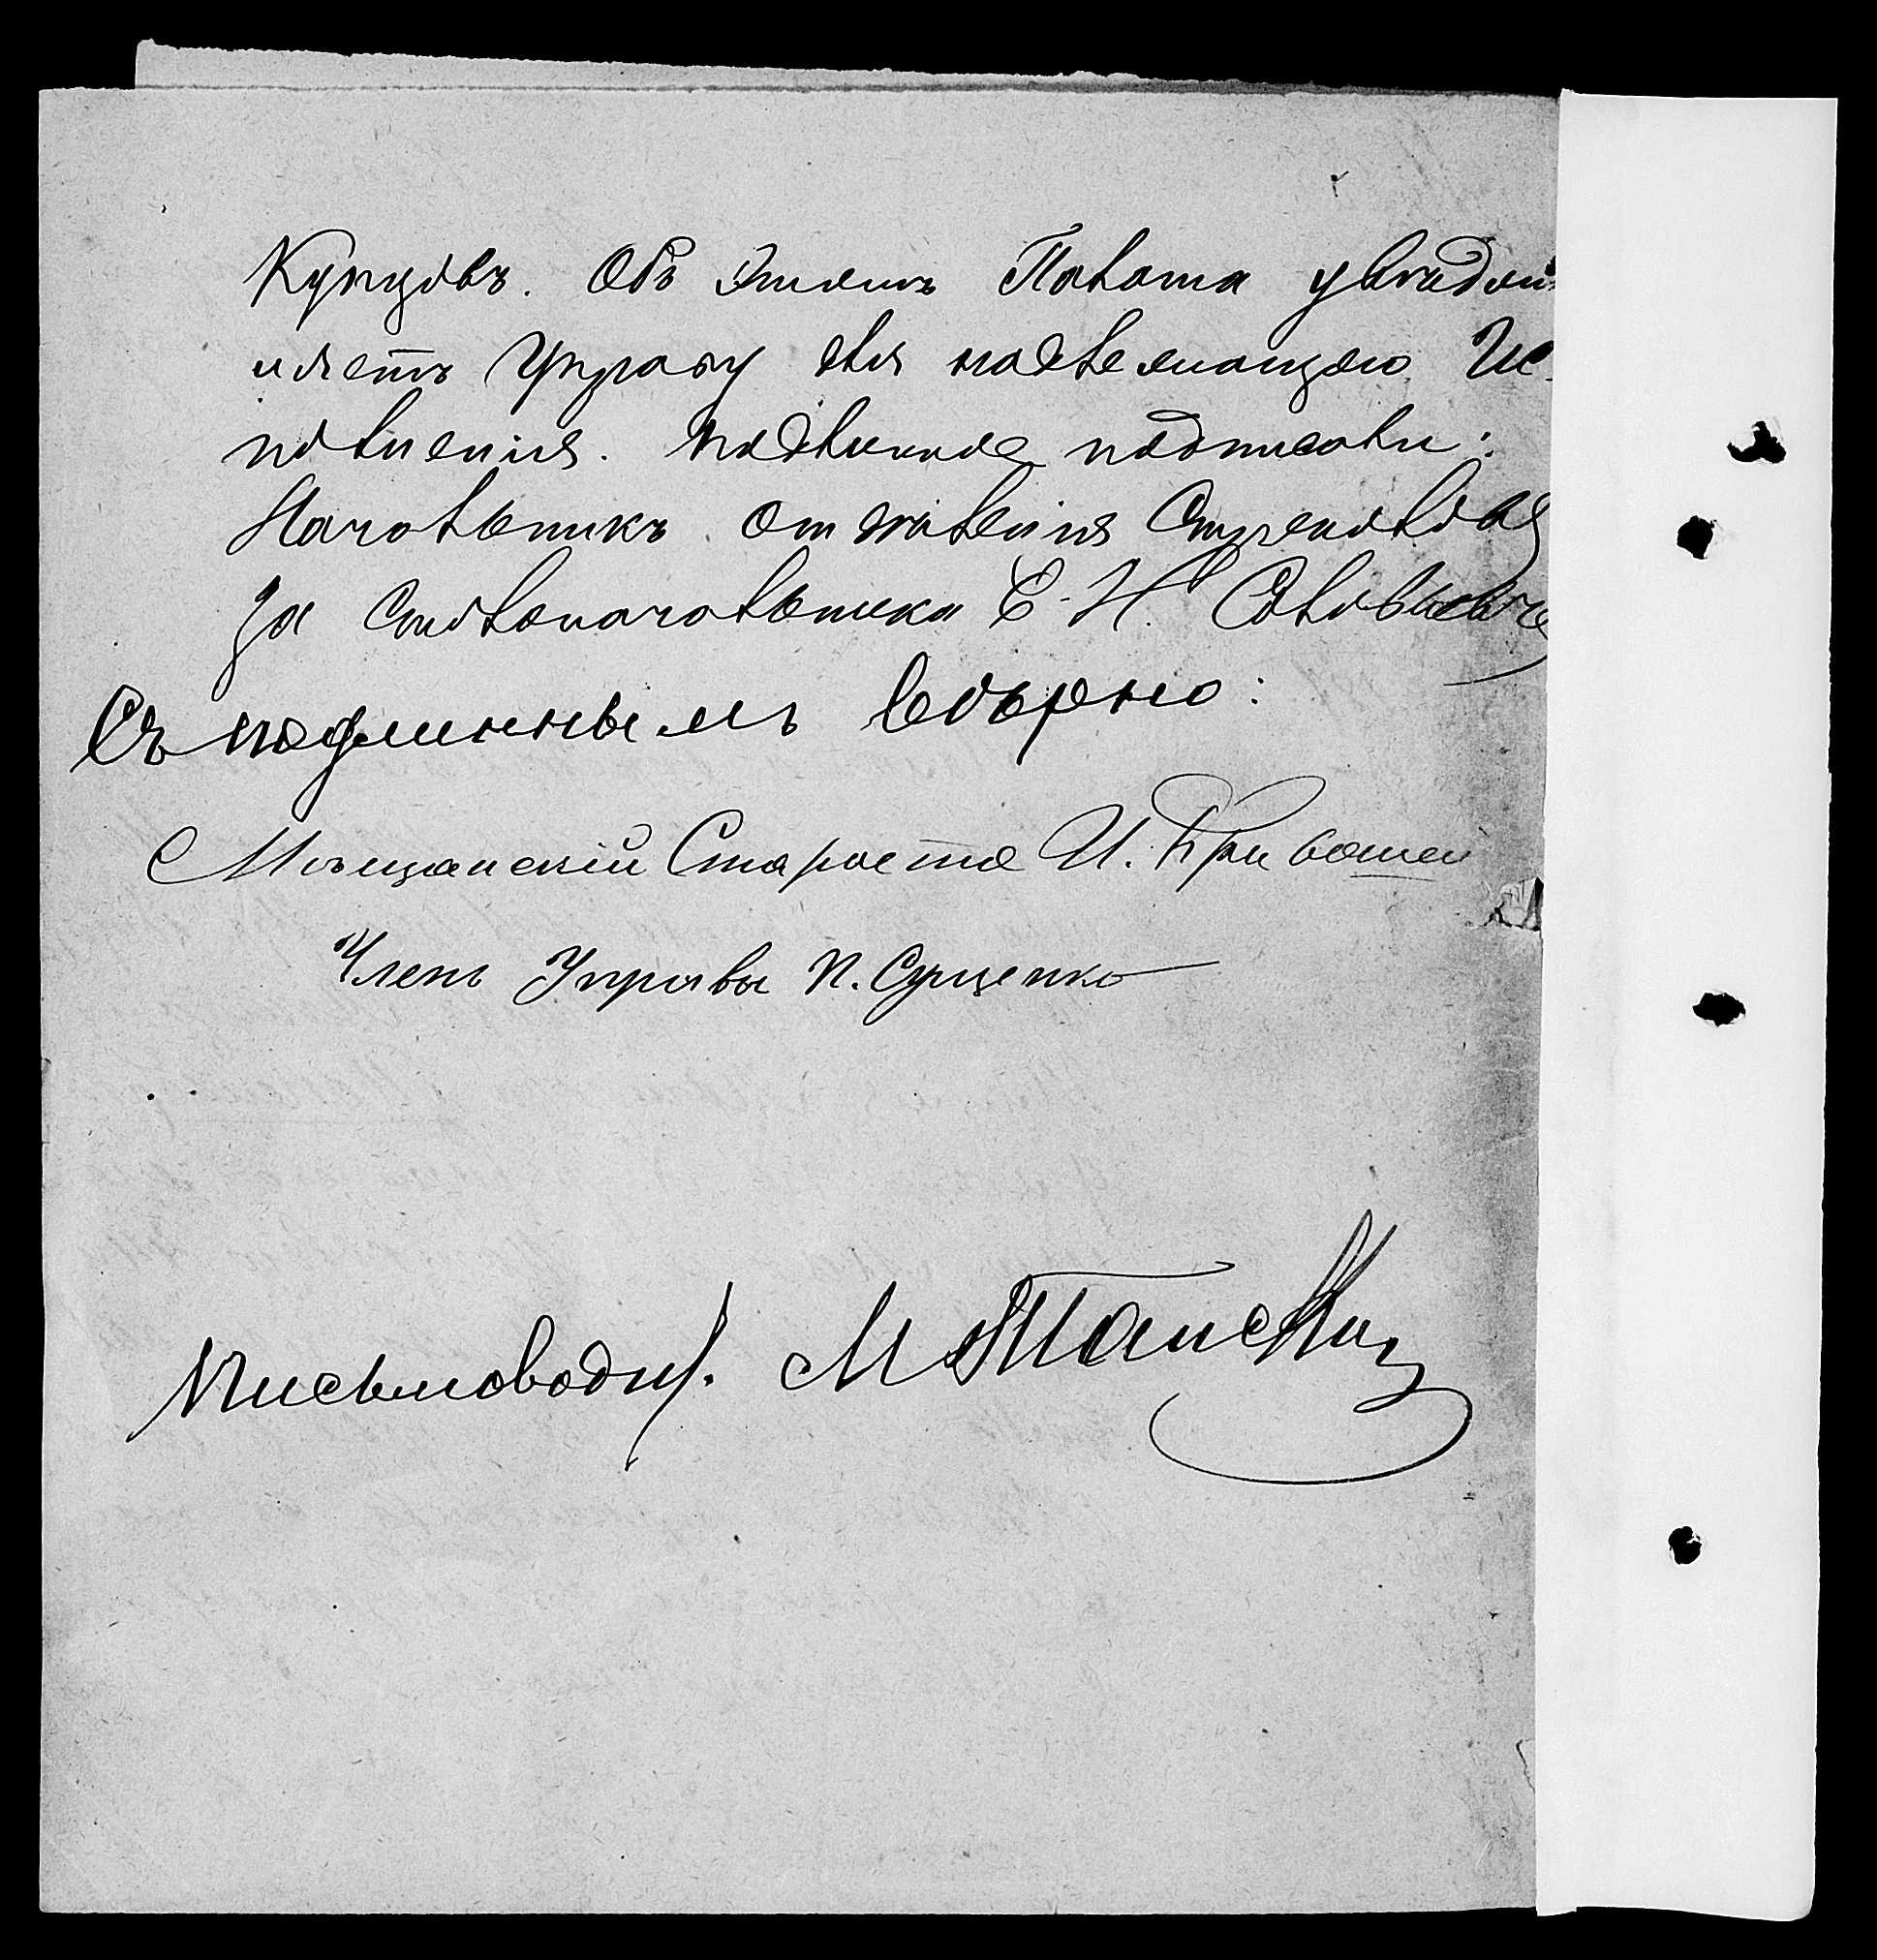 Купцовъ. Объ этомъ Палата увѣдом-
ляетъ Управу для надлежащаго Ис-
полненія. Подлинное подписали:
Начальникъ отдѣленія
За Столоначальника Е. Н.
Съ подлиннымъ вѣрно:
Мѣщанскій Староста И. Кривошеи
Членъ Управы П. Сущенко
Письмовод. М